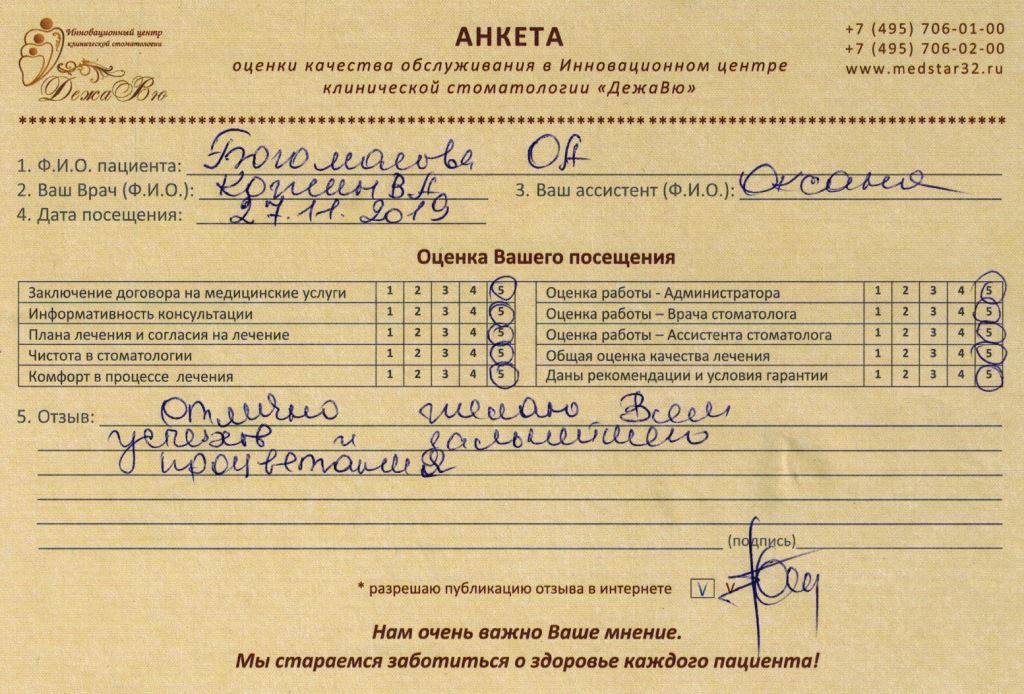 Инновационный центр
клинической стоматологии
ДежаВю
АНКЕТА
оценки качества обслуживания в Инновационном центре
клинической стоматологии «ДежаВю»
+7 (495) 706-01-00
+7 (495) 706-02-00
www.medstar32.ru
1. Ф.И.О. пациента: Богомолова ОА
2. Ваш Врач (Ф.И.О.): Кожин В А 3. Ваш ассистент (Ф.И.О.): Оксана
4. Дата посещения: 27.11.2019
Оценка Вашего посещения
Заключение договора на медицинские услуги 1 2 3 4 5 Оценка работы - Администратора 1 2 3 4 5
Информативность консультации 1 2 3 4 5 Оценка работы – Врача стоматолога 1 2 3 4 5
Плана лечения и согласия на лечение 1 2 3 4 5 Оценка работы – Ассистента стоматолога 1 2 3 4 5
Чистота в стоматологии 1 2 3 4 5 Общая оценка качества лечения 1 2 3 4 5
Комфорт в процессе лечения 1 2 3 4 5 Даны рекомендации и условия гарантии 1 2 3 4 5
5. Отзыв: Отлично желаю Всем
успехов и дальнейшего
процветания
(подпись)
* разрешаю публикацию отзыва в интернете V
Нам очень важно Ваше мнение.
Мы стараемся заботиться о здоровье каждого пациента!